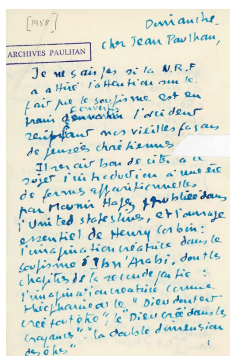 [1958]
Dimanche.
ARCHIVES PAULHAN
cher Jean Paulhan,
Je ne sais pas si la N.R.F
a attiré l'attention sur le
fait que le soufisme est en
train l'occident
nos vieilles façons
de pensées chrétiennes
Il serait bon de citer à ce
sujet l'introduction à une ère
de formes apparitionnelles
par publiée dans
l'United states lines, et l'ouvrage
essentiel de Henry Corbin:
l'imagination créatrice dans le
soufisme d'Ibn 'Arabi, dont les
chapitres de la seconde partie:
l'imagination créatrice comme
théophanie et le "Dieu dont est
créé tout être", le "Dieu créé dans les
croyances". "la double dimension
des êtres"